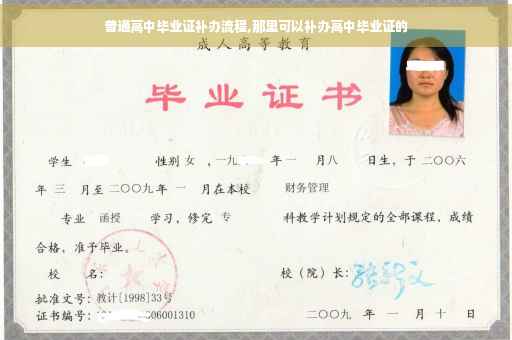 普通高中毕业证补办流程,那里可以补办高中毕业证的
成人高等教育
毕业证书
学生 性别 女 ，一九 年 一 月 八 日生，于 二〇〇六
年 三 月至 二〇〇九 年 一 月在本校 财务管理
专业 函授 学习，修完 专 科教学计划规定的全部课程，成绩
合格，准予毕业。
校 名： 校（院）长：
批准文号：教计[1998]33号
证书编号： 06001310 二〇〇九 年 一 月 十 日